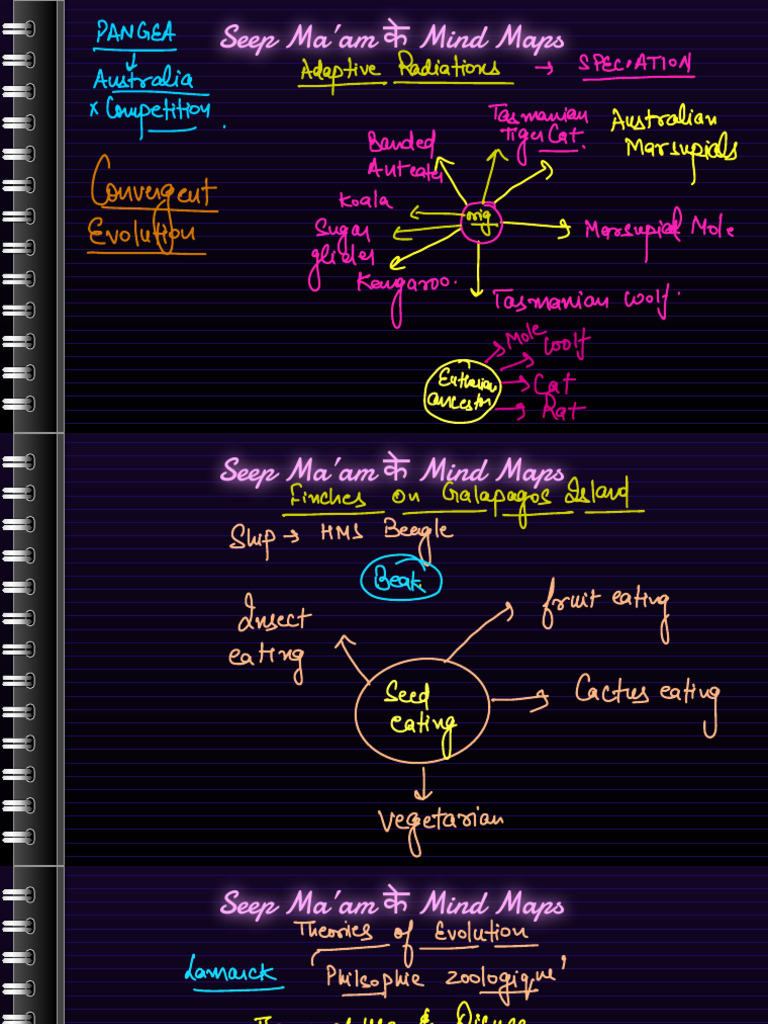 PANGEA
Australia
x Competition.
Convergent
Evolution
Seep Ma'am के Mind Maps
Adaptive Radiations → SPECIATION
Tasmanian
Tiger Cat.
Australian
Marsupials
Banded
Anteater
Koala
Sugar
glider
Kangaroo.
orig
Marsupial Mole
Tasmanian Woolf.
Eutherian
ancestor
Mole
Woolf
Cat
Rat
Seep Ma'am के Mind Maps
Finches on Galapagos Island
Ship → HMS Beagle
Beak
Insect
eating
fruit eating
Seed
eating
Cactus eating
Vegetarian
Seep Ma'am के Mind Maps
Theories of Evolution
Lamarck 'Philsophie zoologique'